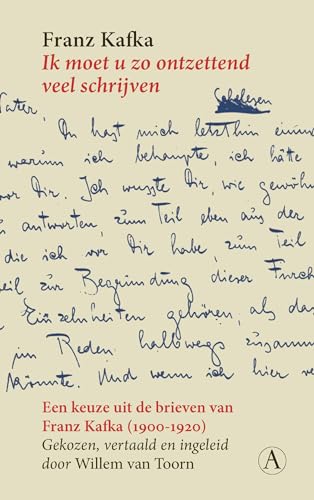 Franz Kafka
Ik moet u zo ontzettend
veel schrijven
Schelesen
Vater,
Du hast mich letzthin einmal
warum ich behaupte, ich hätte
vor Dir. Ich wusste Dir, wie gewöhn
zu antworten, zum Teil eben aus der
die ich vor Dir habe, zum Teil
weil zur Begründung dieser Furch
Einzelnheiten gehören, als das
im Reden halbwegs zusamm
könnte. Und wenn ich hier ve
Een keuze uit de brieven van
Franz Kafka (1900-1920)
Gekozen, vertaald en ingeleid
door Willem van Toorn
A